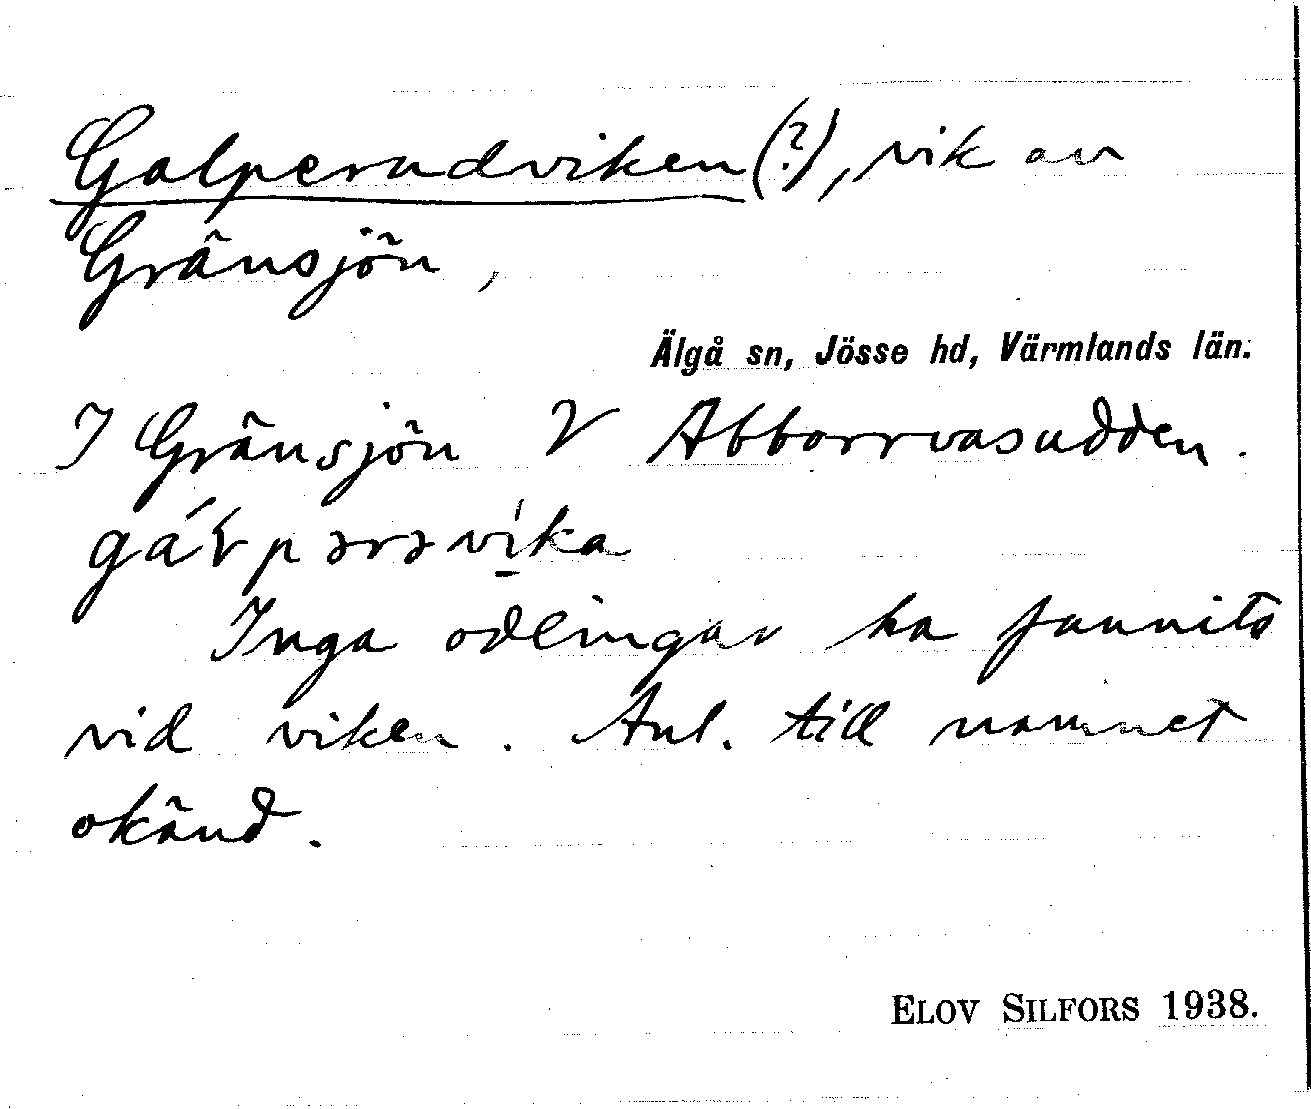 Galperudviken (?), vik av
Gränsjön,
Älgå sn, Jösse hd, Värmlands län.
I Gränsjön V Abborrvasudden.
Inga odlingar ha funnits
vid viken. Anl. till namnet
okänd.
ELOV SILFORS 1938.